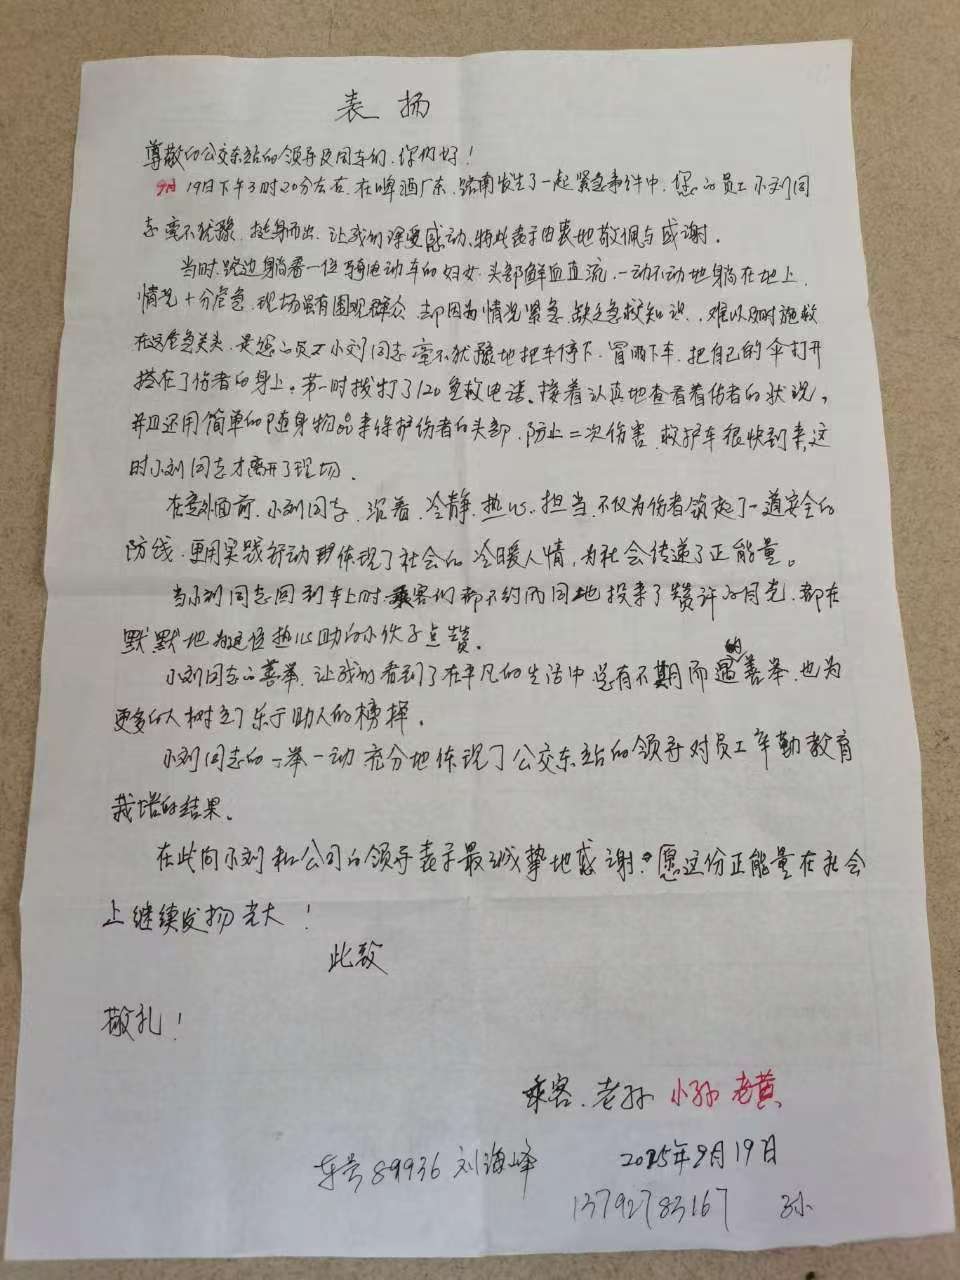 表扬
尊敬的公交东站的领导及同车的,你们好!
9月19日下午3时20分左右,在啤酒厂东,路南发生了一起紧急事件中,您的员工小刘同
志毫不犹豫,挺身而出,让我们深受感动、特此表示由衷地敬佩与感谢。
当时,路边躺着一位骑电动车的妇女,头部鲜血直流,一动不动地躺在地上,
情况十分危急,现场虽有围观群众,却因为情况紧急,缺乏急救知识,难以及时施救
在这危急关头,是您的员工小刘同志毫不犹豫地把车停下,冒雨下车,把自己的伞打开
搭在了伤者的身上。第一时拨打了120急救电话。接着认真地查看着伤者的状况,
并且还用简单的随身物品来保护伤者的头部,防止二次伤害,救护车很快到来,这
时小刘同志才离开了现场。
在意外面前,小刘同志,沉着,冷静,热心,担当,不仅为伤者筑起了一道安全的
防线,更用实践行动体现了社会的冷暖人情,为社会传递了正能量。
当小刘同志回到车上时,乘客们都不约而同地投来了赞许的目光,都在
默默地为这位热心助的小伙子点赞。
小刘同志的善举,让我们看到了在平凡的生活中总有不期而遇的善举,也为
更多的人树立了乐于助人的榜样。
小刘同志的一举一动充分地体现了公交东站的领导对员工辛勤教育
栽培的结果。
在此向小刘和公司的领导表示最诚挚地感谢,愿这份正能量在社会
上继续发扬光大!
此致
敬礼!
乘客、老孙 小孙 老黄
车号89936 刘海峰 2025年9月19日
13792783167 孙